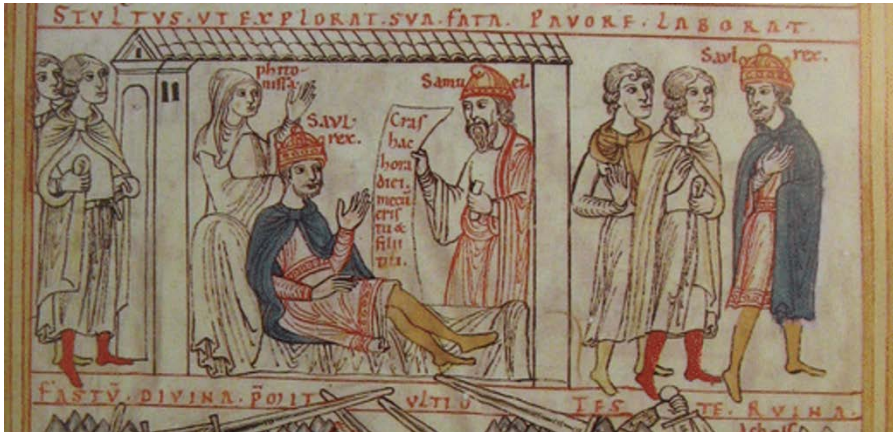 STVLTVS·VT EXPLORAT·SVA·FATA· PAVORE·LABORAT·
phito-
nissa·
SAVL·
rex·
Samuel·
Cras
hac
hora
diei·
mecū
eris
tu &
filii
tui·
SAVL rex·
FASTŪ·DIVINA·P̄MIT VLTIO TES TE·RVINA·